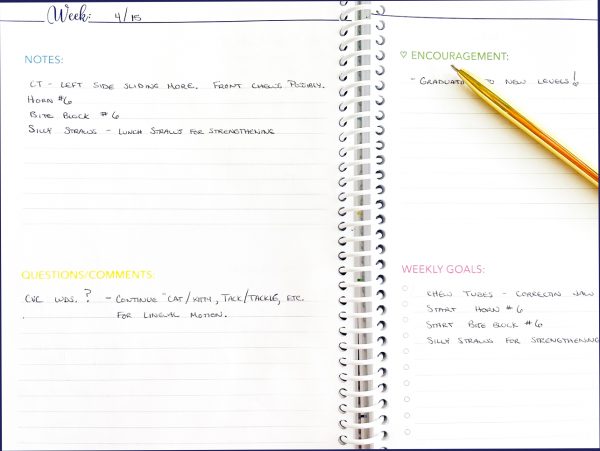 Week: 4/15
NOTES:
CT - LEFT SIDE SLIDING MORE. FRONT CHEWS POSSIBLY.
HORN #6
BITE BLOCK #6
SILLY STRAWS - LUNCH STRAWS FOR STRENGTHENING
QUESTIONS/COMMENTS:
CVC WDS. ? - CONTINUE "CAT/KITTY, TACK/TACKLE, ETC.
FOR LINGUAL MOTION.
ENCOURAGEMENT:
- GRADUATE TO NEW LEVELS!
WEEKLY GOALS:
CHEW TUBES - CORRECTION
START HORN #6
START BITE BLOCK #6
SILLY STRAWS FOR STRENGTHENING